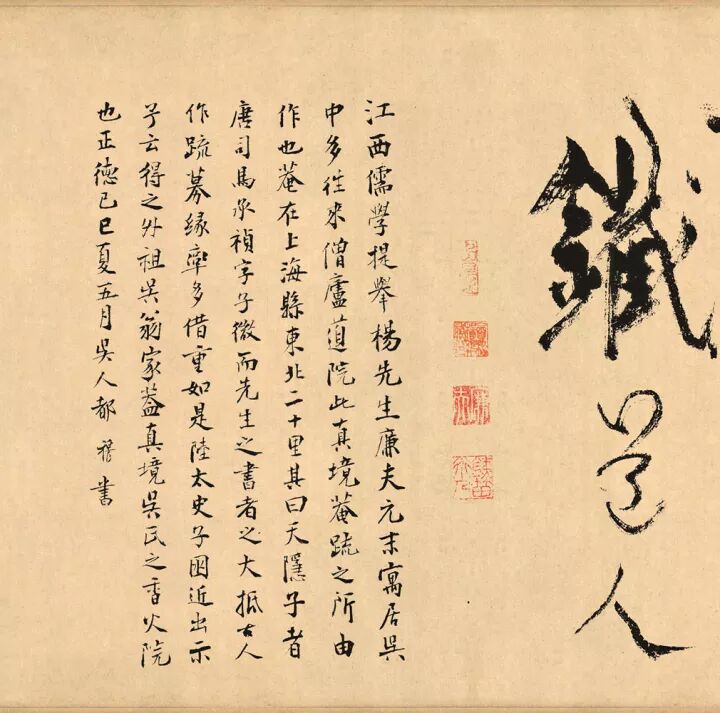 鐵道人
江西儒學提舉楊先生廉夫元末寓居吳
中多往來僧廬道院此真境菴疏之所由
作也菴在上海縣東北二十里其曰天隱子者
唐司馬承禎字子微而先生之書者之大抵古人
作疏募緣率多借重如是陸太史子困近出示
予云得之外祖吳翁家蓋真境吳氏之香火院
也正德己巳夏五月吳人都穆書